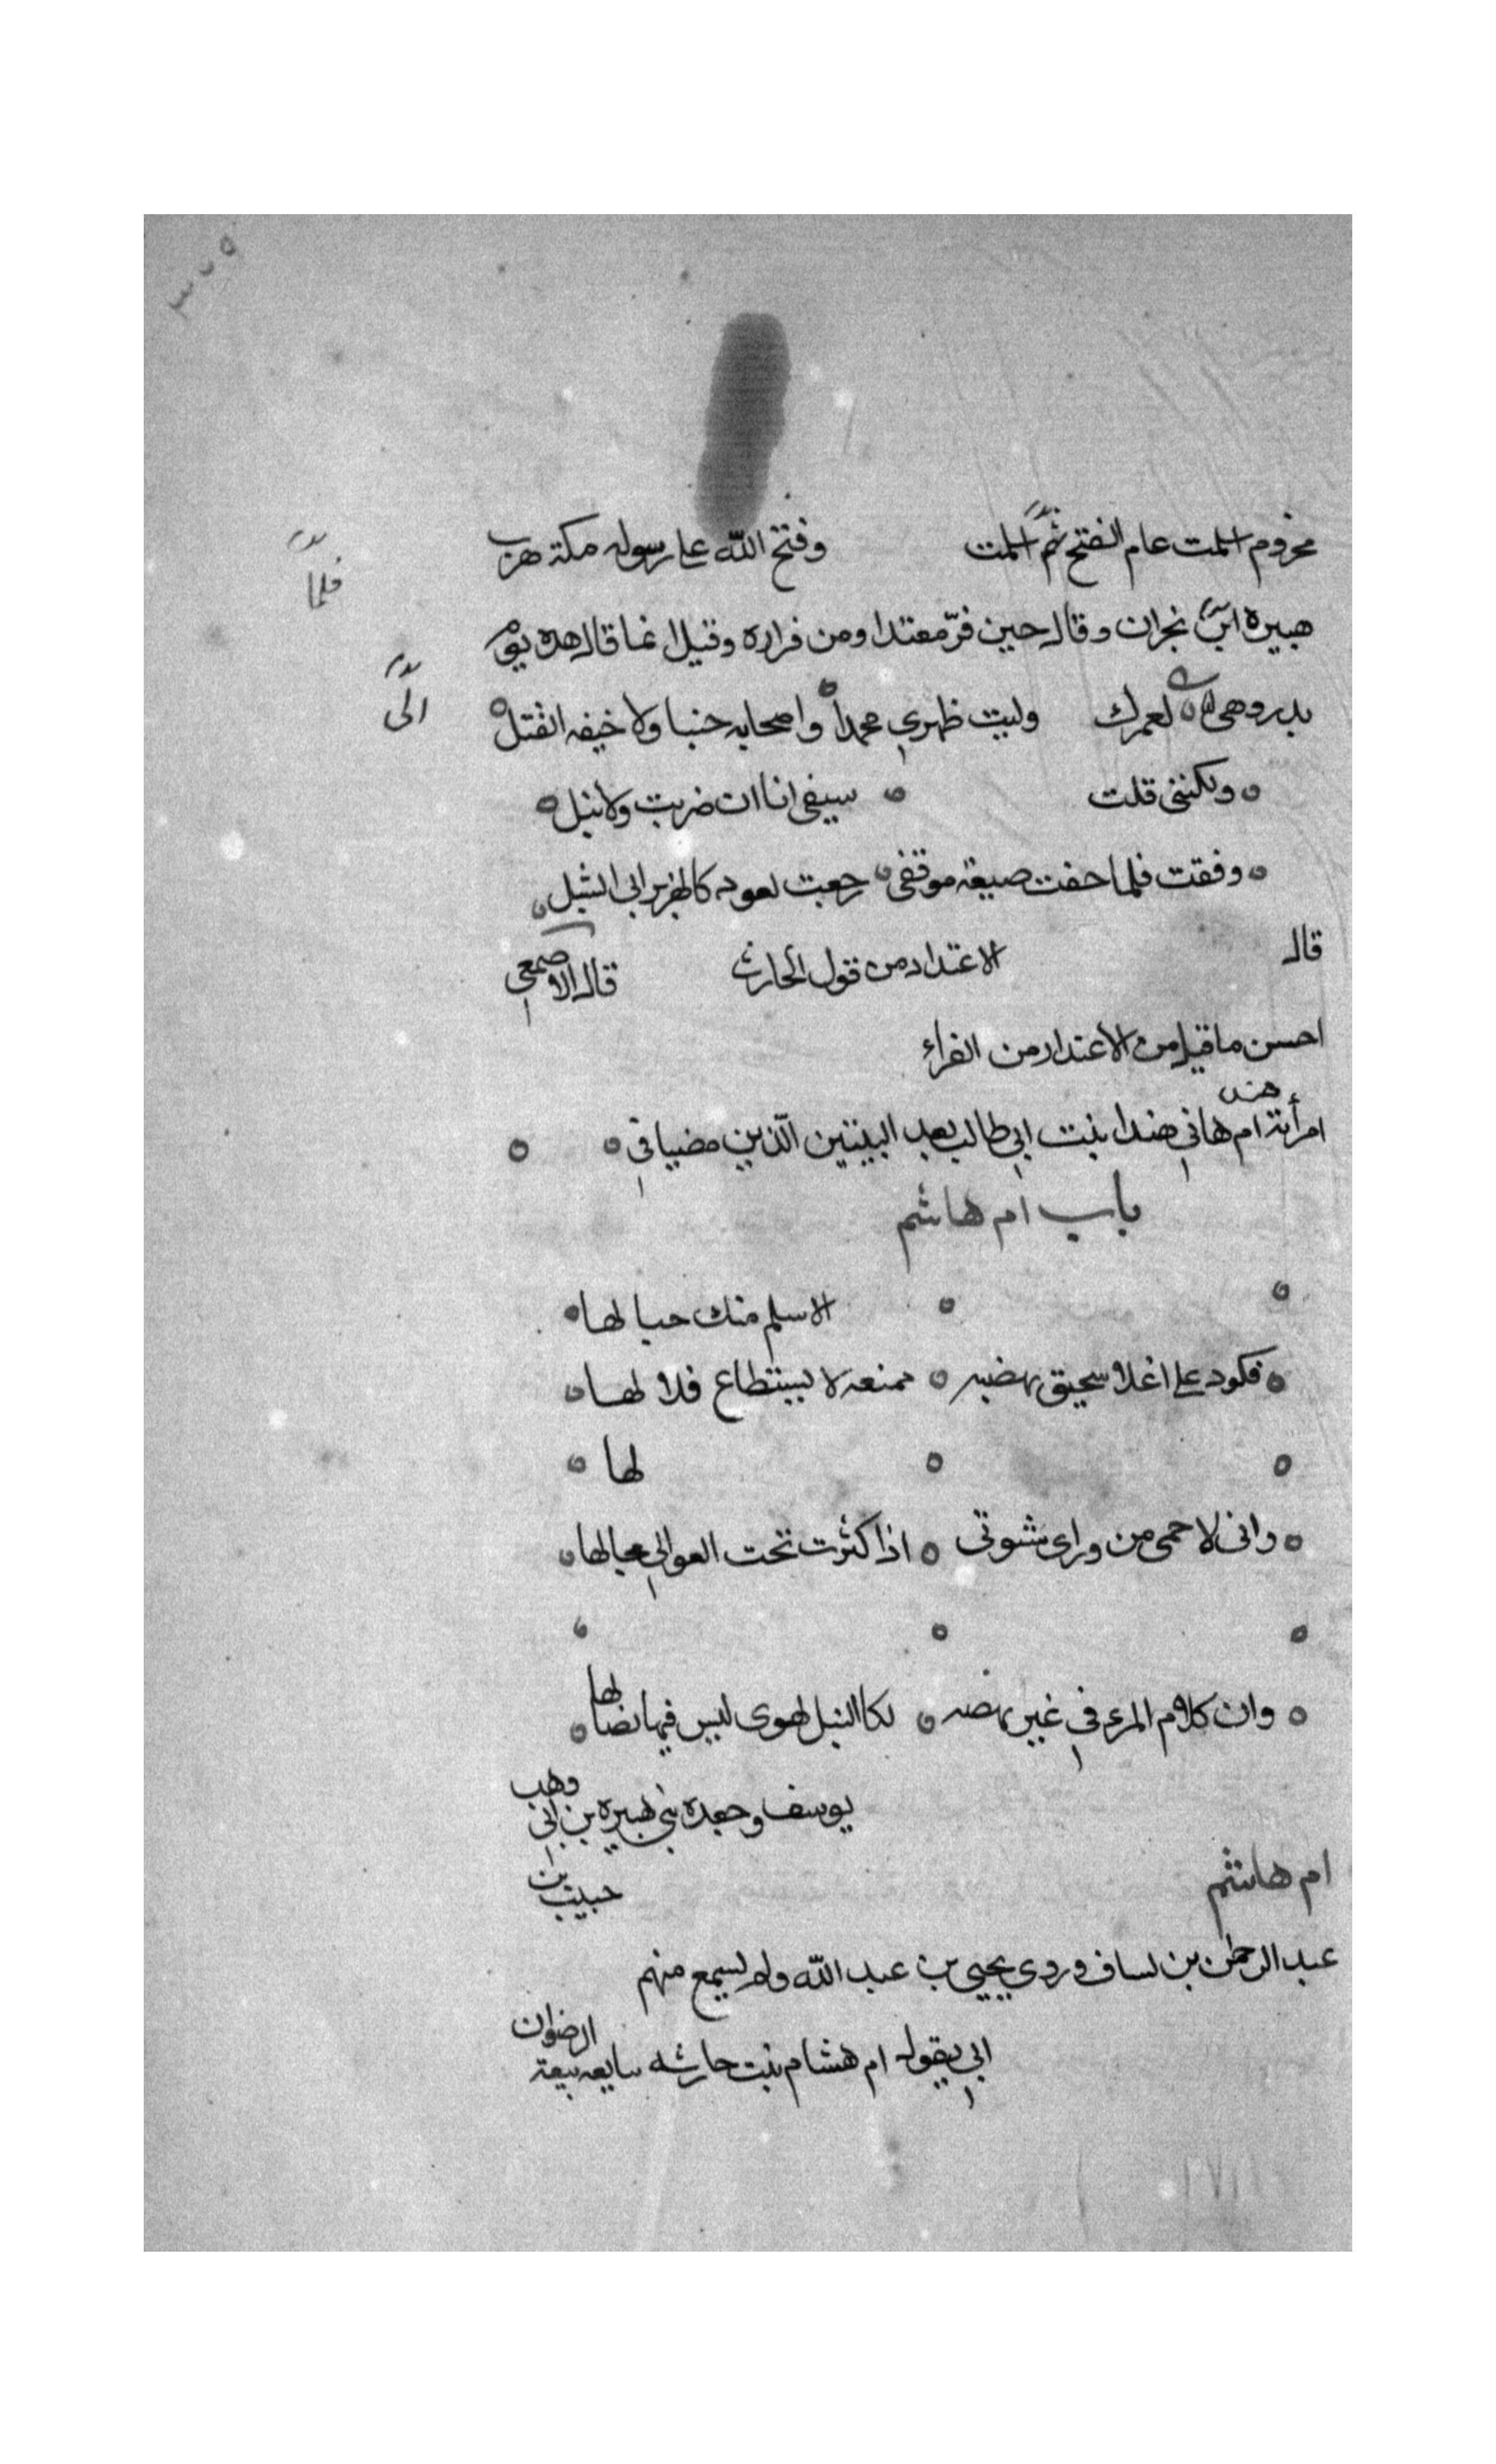 مخزوم اسلمت عام الفتح ثم اسلمت وفتح الله على رسوله مكة هرب
فلما
هبيرة ابن نجران وقال حين فر معتدا ومن فراره وقيل انما قال هده يوم
بدر وهى لعمرك وليت ظهري محمدا واصحابه جنبا ولا خيفه القتل
الى
ولكننى قلت سيفى انا ان ضربت ولا نبل
وفقت فلما خفت صيعة موقفى رجعت لعود كالهزبر ابى الشبل
قال الاعتدار من قول الحارث قال الاصمعي
احسن ما قيل من الاعتدار من الفراء
هند
امرأته ام هاني هندا بنت ابي طالب بعد البيتين الذين مضيا في
باب ام هاشم
الاسلم منك حبالها
فكود على اغلا سحيق بهضبه ممنعه لا يستطاع قلالها
لها
وانى لاحمى من وراى اذا كثرت تحت العوالي مجالها
وان كلام المرء في غير لكالنبل تهوى ليس فيها نصالها
يوسف وجعده بني هبيرة بن ابي وهب
ام هاشم حبيب بن
عبد الرحمن بن يساف وروي يحيى بن عبد الله ولم يسمع منهم
ابي يقول ام هشام بنت حارثه بايعه بيعة الرضوان